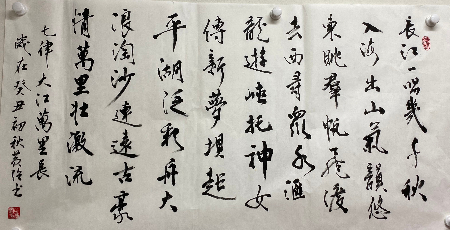 長江一唱幾千秋
入海出山氣韻悠
東眺群帆飛渡
去西尋眾水匯
龍遊峽托神女
傳新夢壩起
平湖泛彩舟大
浪淘沙連遠古豪
情萬里壯激流
七律大江萬里長
歲在癸丑初秋書